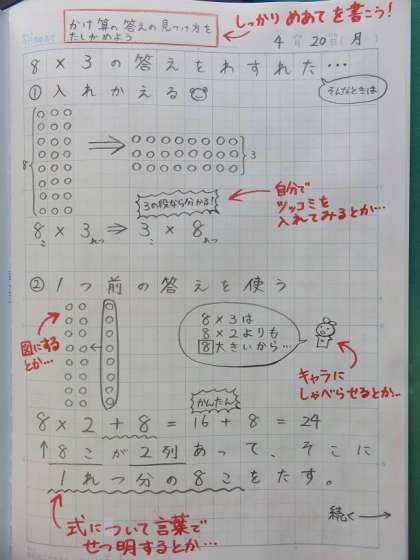 かけ算の答えの見つけ方を
たしかめよう
しっかりめあてを書こう!
4月20日(月)
8×3の答えをわすれた…
そんなときは
①入れかえる
8
3
3の段なら分かる!
自分で
ツッコミを
入れてみるとか…
8こ×3れつ⇒3こ×8れつ
②1つ前の答えを使う
図にする
とか…
8×3は
8×2よりも
8大きいから…
キャラに
しゃべらせるとか…
かんたん
8×2+8=16+8=24
↑8こが2列あって、そこに
1れつ分の8こをたす。
式について言葉で
せつ明するとか…
続く→